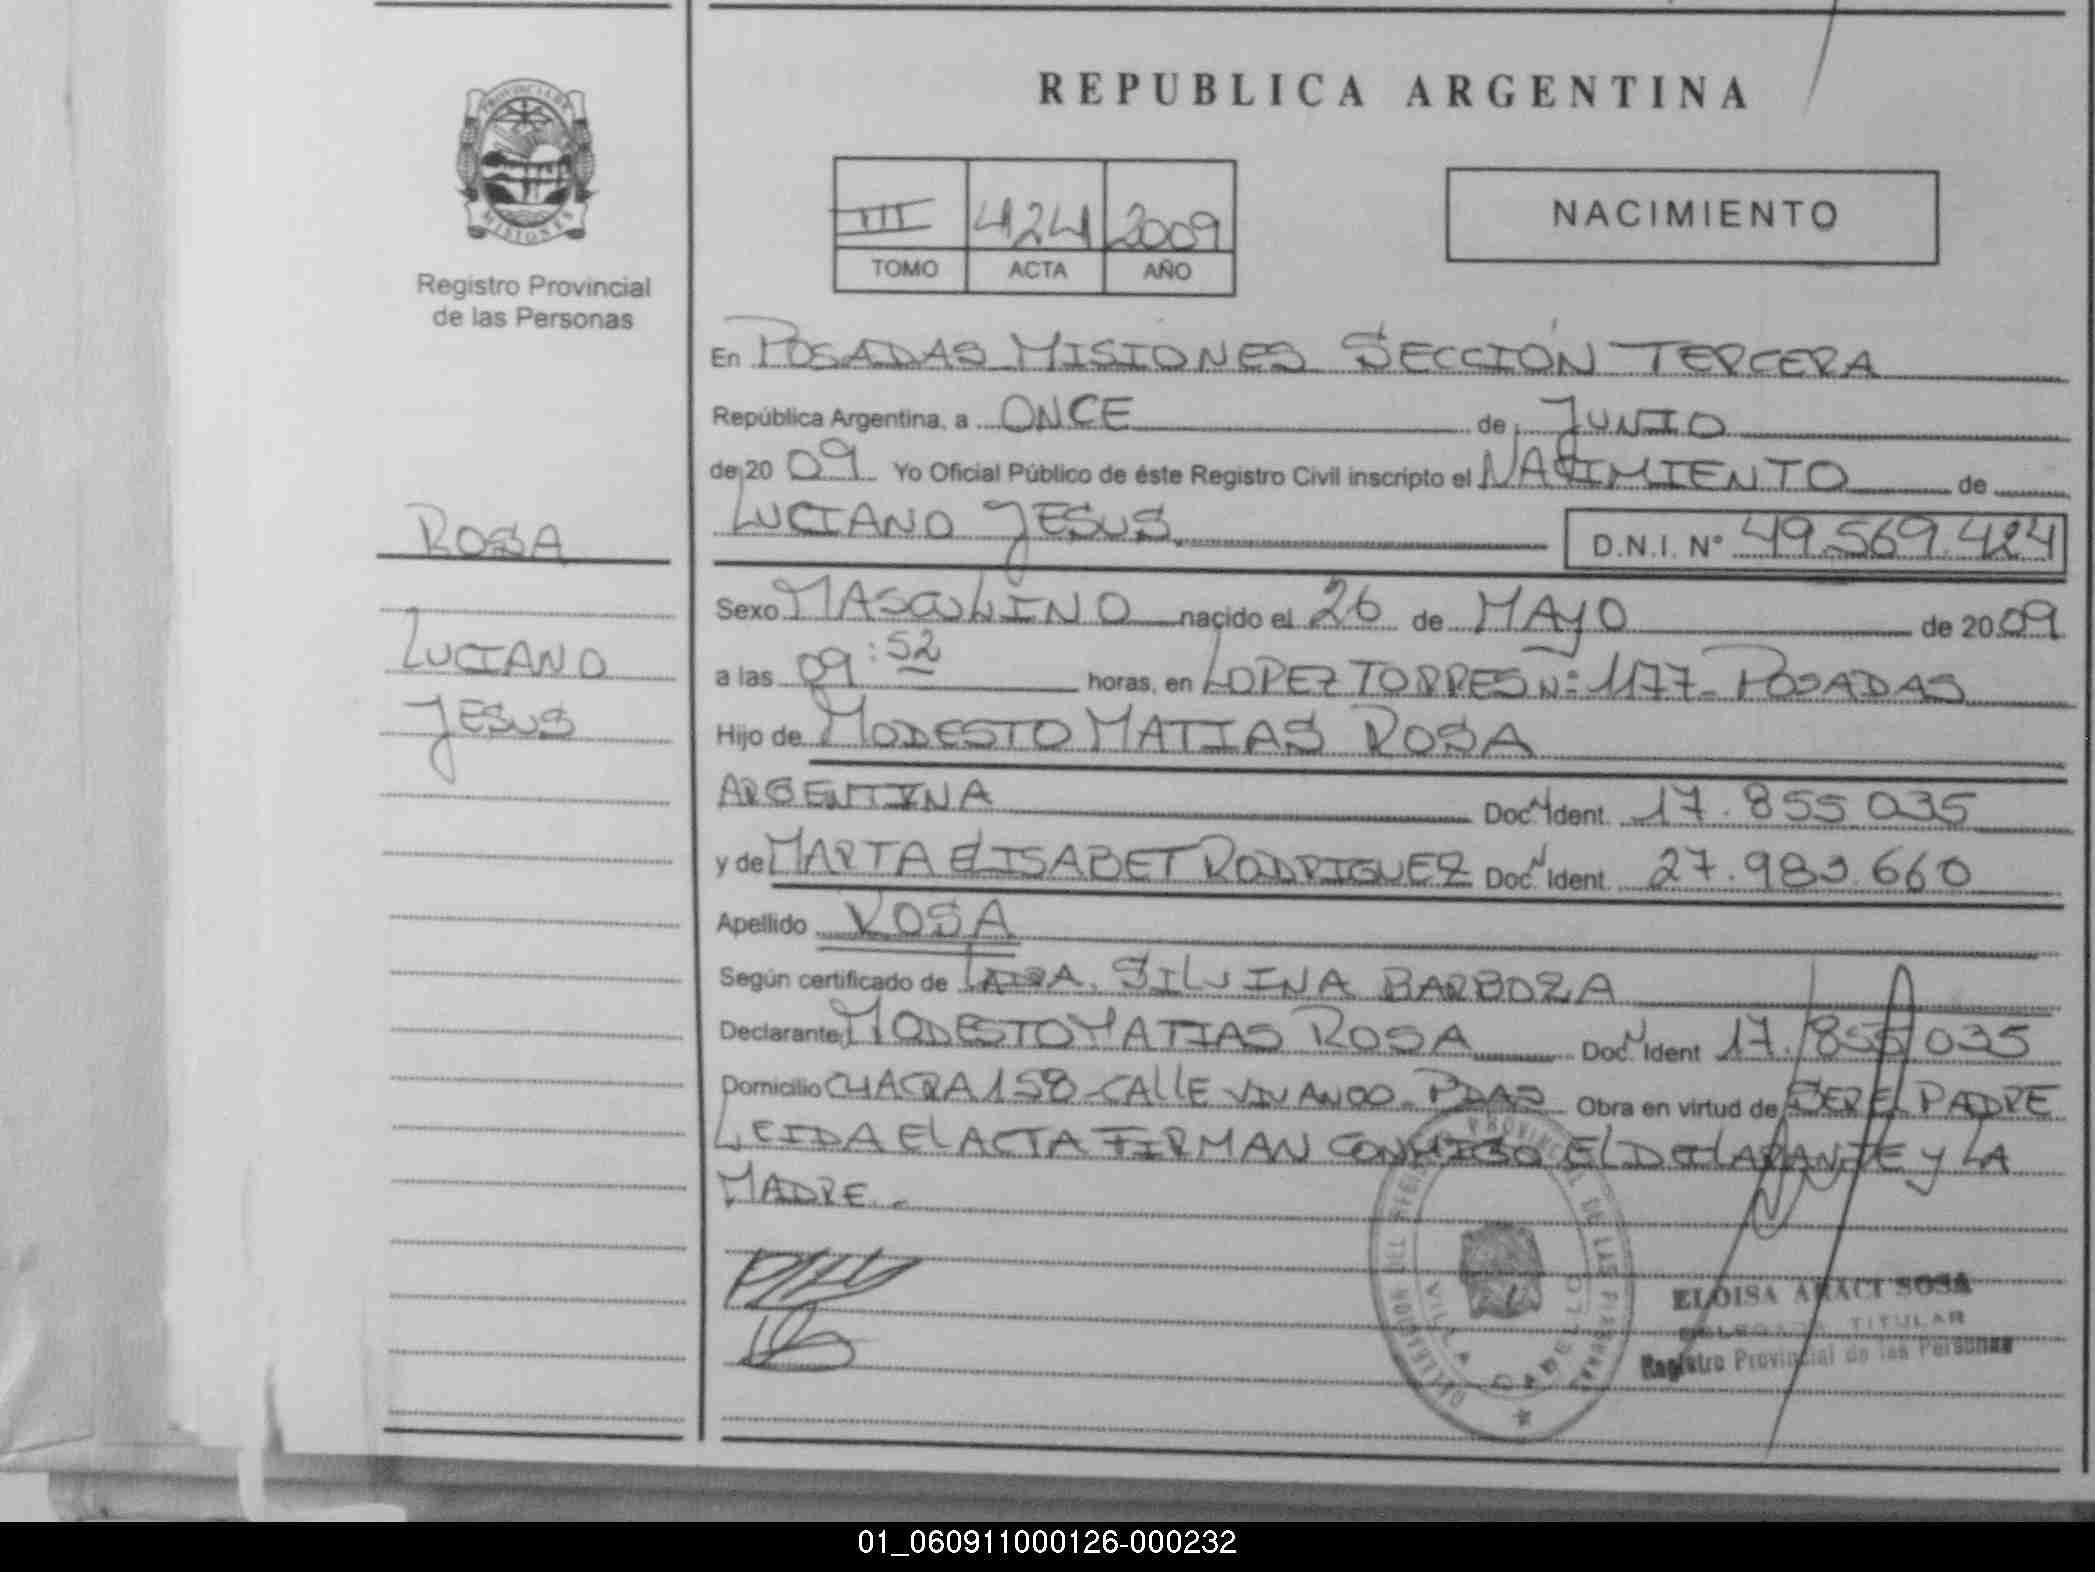 REPUBLICA ARGENTINA
PROVINCIA DE
MISIONES
Registro Provincial
de las Personas
III 424 2009
TOMO ACTA AÑO
NACIMIENTO
En POSADAS MISIONES SECCIÓN TERCERA
República Argentina, a ONCE de JUNIO
de 20 09 Yo Oficial Público de éste Registro Civil inscripto el NACIMIENTO de
LUCIANO JESUS D.N.I. N° 49.569.424
ROSA
LUCIANO
JESUS
Sexo MASCULINO nacido el 26 de MAYO de 2009
a las 09:52 horas, en LOPEZ TORRES Nº 1177- POSADAS
Hijo de MODESTO MATIAS ROSA
ARGENTINA Doc. N Ident. 17.855 035
y de MARTA ELISABET RODRIGUEZ Doc. N Ident. 27.983.660
Apellido ROSA
Según certificado de SILVINA BARBOZA
Declarante MODESTO MATIAS ROSA Doc. N Ident 17.855 035
Domicilio CHACRA 158 - CALLE VIVANCO - PDAS Obra en virtud de SER EL PADRE
LEIDA El ACTA FIRMAN CONMIGO El DEClARANTE y LA
MADRE.-
DELEGACION DEL REGISTRO PROVINCIAL DE LAS PERSONAS
VILLA CABELLO
ELOISA ARACI SOSA
DELEGADA TITULAR
Registro Provincial de las Personas
01_060911000126-000232